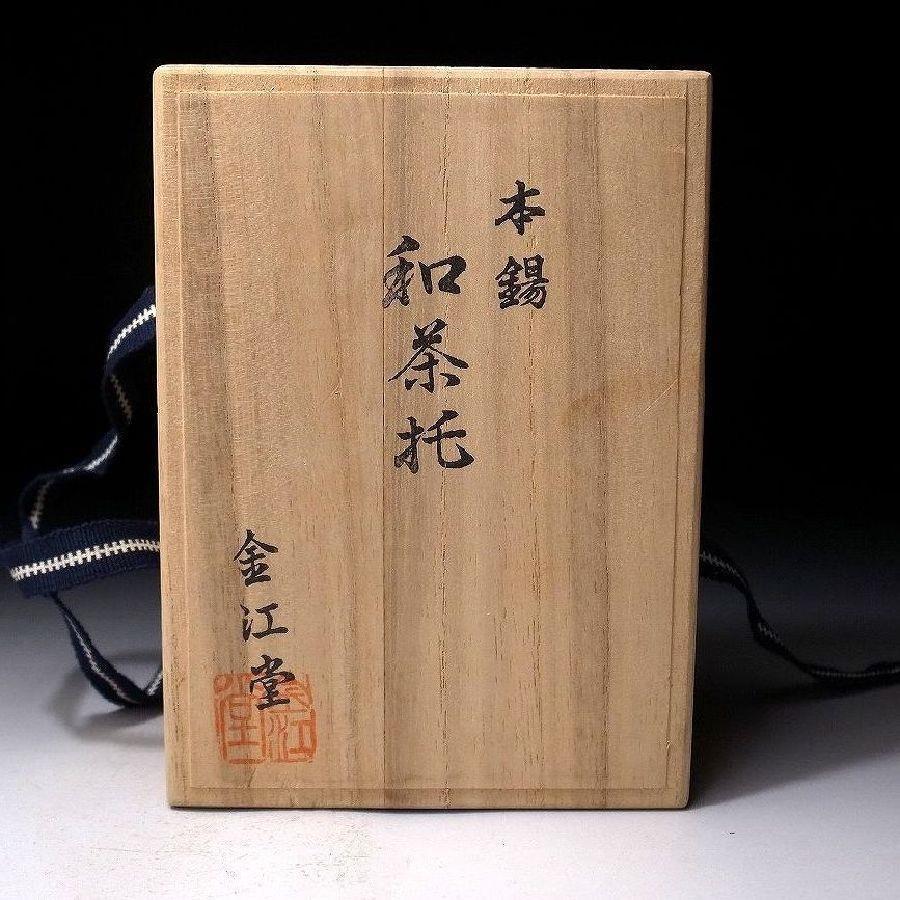 本錫
和茶托
金江堂
金江堂